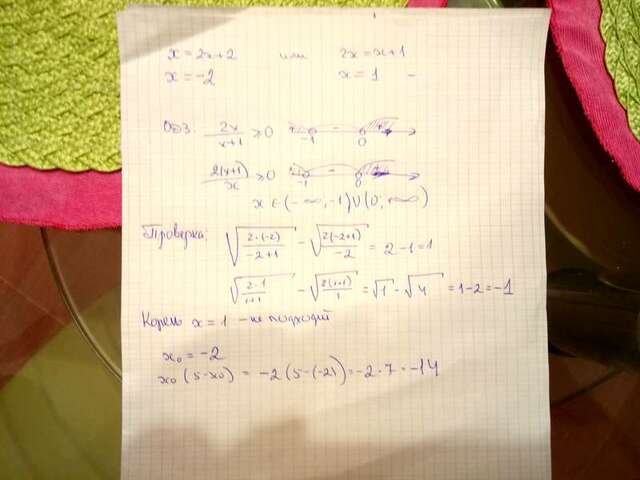 x = 2x+2 или 2x = x+1
x = -2 x = 1 -
ОДЗ: 2x/x+1 > 0 -1 - 0
2(x+1)/x > 0 -1 - 0
x ∈ (-∞; -1) ∪ (0; +∞)
Проверка: √(2·(-2)/-2+1) - √(2(-2+1)/-2) = 2-1=1
√(2·1/1+1) - √(2(1+1)/1) = √1 - √4 = 1-2=-1
Корень x = 1 - не подходит
x₀ = -2
x₀ (5-x₀) = -2(5-(-2)) = -2·7 = -14